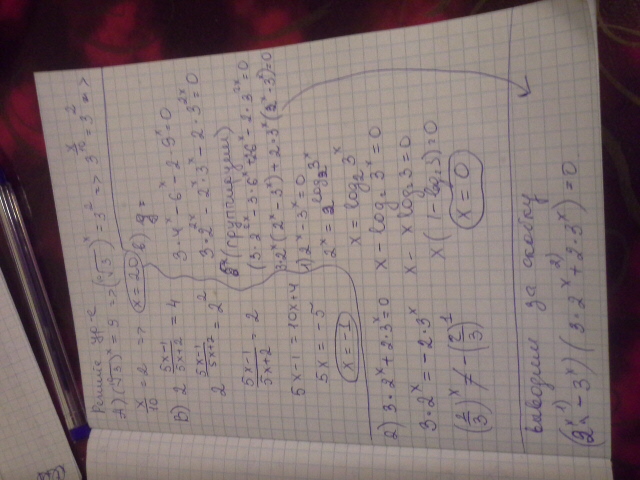 Решите ур-е
A) (¹⁰√3)^x = 9 => (¹⁰√3)^x = 3^2 => 3^(x/10) = 3^2 =>
x/10 = 2 => x = 20
B) 2^((5x-1)/(5x+2)) = 4
2^((5x-1)/(5x+2)) = 2^2
(5x-1)/(5x+2) = 2
5x-1 = 10x+4
5x = -5
x = -1
3·4^x - 6^x - 2·9^x = 0
3·2^2x - 2^x·3^x - 2·3^2x = 0
(группируем)
3·2^x(2^x - 3^x) + 2·3^x(2^x - 3^x) = 0
1) 2^x - 3^x = 0
2^x = 2^(log₂3^x)
x = log₂3^x
x - log₂3^x = 0
x - x log₂3 = 0
x(1 - log₂3) = 0
x = 0
2) 3·2^x + 2·3^x = 0
3·2^x = -2·3^x
(2/3)^x ≠ -(2/3)^1
выводим за скобку
(2^x - 3^x)(3·2^x + 2·3^x) = 0